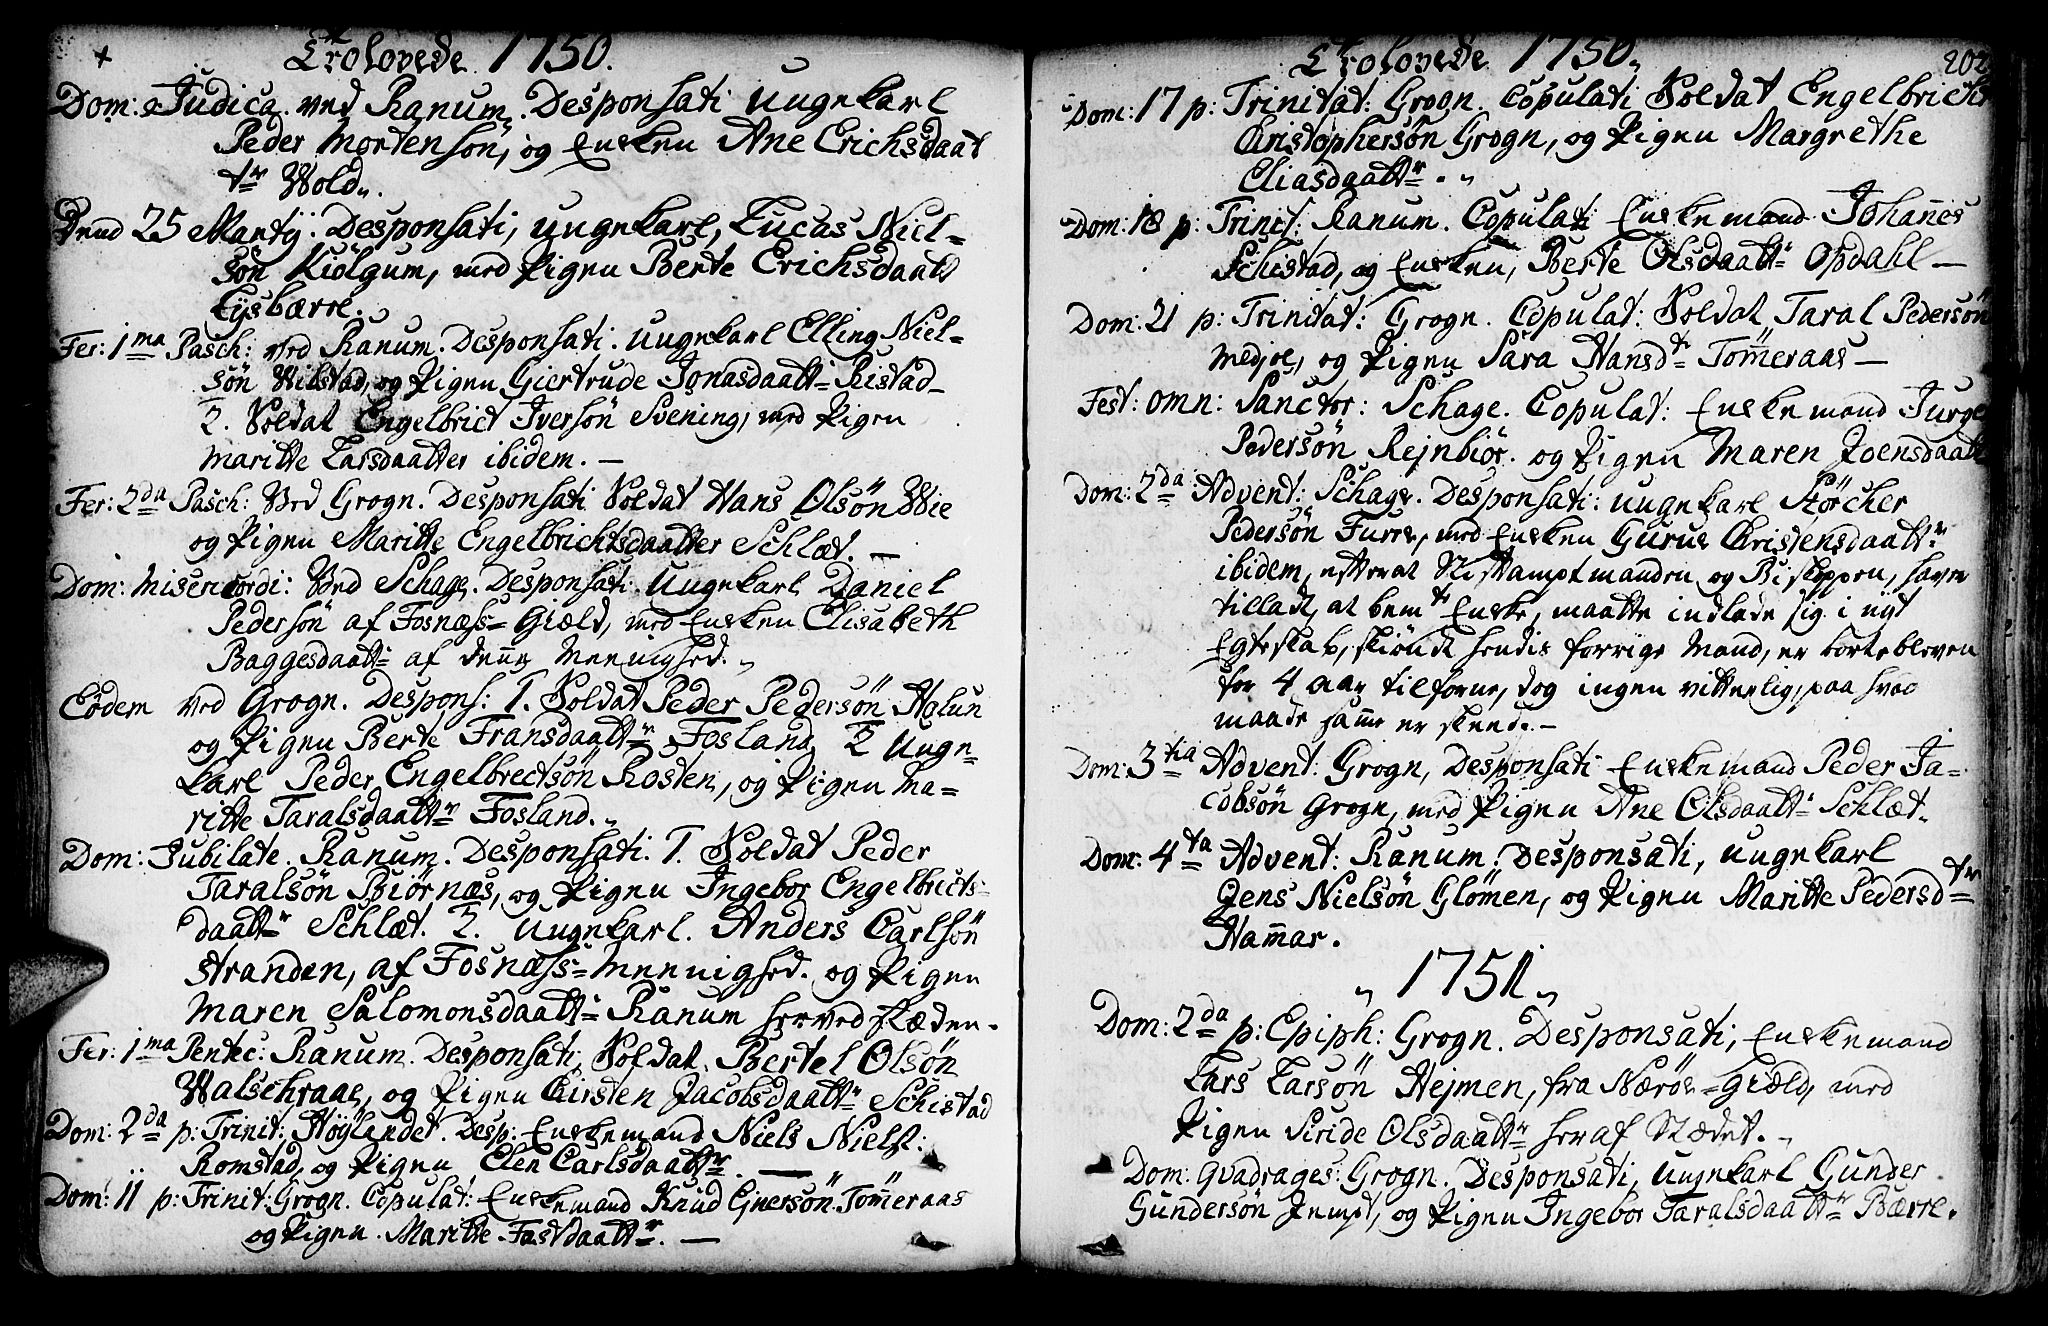 Trolovede 1750.
Dom: Judica. ved Ranum. Desponsati Ungekarl
Peder Mortensøn, og Enken Ane Erichsdaat
tr Wold.
Dend 25 Martij. Desponsati, ungekarl, Lucas Niel-
søn Kiølgum, med Pigen Berte Erichsdaatr
Lysbærre.
Fer: 1ma Pasch: ved Ranum. Desponsati. Ungekarl Elling Niel-
søn Wibstad, og Pigen Giertrude Jonasdaattr Ristad
2. Soldat Engelbrict Iversøn Svening, med Pigen
Maritte Larsdaatter ibidem. —
Fer: 2da Pasch: Ved Grogn. Desponsati Soldat Hans Olsøn Wie
og Pigen Maritte Engelbrichtsdaatter Schlæt. —
Dom: Misericordi: Ved Schage. Desponsati. Ungekarl Daniel
Pedersøn af Fosnæss-Gield, med Enken Elisabeth
Baggesdaattr af denne Meenighed.
Eodem ved Grogn. Despons: 1. Soldat Peder Pedersøn Halun
og Pigen Berte Fransdaattr Fosland, 2 Unge-
karl Peder Engelbrectsøn Rosten, og Pigen Ma-
ritte Taralsdaattr Fosland.
Dom: Jubilate. Ranum. Desponsati. 1. Soldat Peder
Taralsøn Biørnæs, og Pigen Ingebor Engelbricts-
daattr Schlæt. 2. Ungekarl. Anders Carlsøn
Stranden, af Fosnæss-Meenighed. og Pigen
Maren Salomonsdaattr Ranum herved stæden.
Fer: 1ma Pentec: Ranum. Desponsati, Soldat. Bertel Olsøn
Walschraae, og Pigen Kirsten Jacobsdaattr Schistad
Dom: 2da p: Trinit: Høylandet. Desp: Enkemand Niels Niels:
Romstad, og Pigen Elen Carlsdaattr. —
Dom: 11 p: Trinit: Grogn. Copulat: Enkemand Knud Ejnersøn Tømmeraas
og Pigen. Maritte Fastdaattr. —
Trolovede 1750.
202
Dom: 17 p: Trinitat: Grogn. Copulati Soldat Engelbricht
Christophersøn Grogn, og Pigen Margrethe
Eliasdaattr.
Dom: 18 p: Trinit: Ranum. Copulati Enkemand Johanes
Schistad, og Enken, Berte Olsdaattr Opdahl —
Dom: 21 p: Trinitat: Grogn. Copulat: Soldat Taral Pedersøn
Medjoe, og Pigen Sara Hansdtr Tømeraas —
Fest: omn: Sanctor: Schage. Copulat: Enkemand Jurge
Pedersøn Rejnbiør. og Pigen Maren Joensdaatt
Dom: 2da Advent: Schage. Desponsati: Ungekarl Størcher
Pedersøn Furre, med Enken Gurue Christensdaattr
ibidem, efter at Stiftamptmanden og Biskoppen, haver
tilladt, at bemte Enke, maatte indlade sig i nyt
Egteskab, skiøndt hendis forrige Mand, er borteblevn
for 4 aar tilforne, dog ingen vitterlig, paa hvad
maade same er skeed. —
Dom: 3tia Advent: Grogn, Desponsati Enkemand Peder Ja-
cobsøn Grogn, med Pigen Ane Olsdaattr Schlæt.
Dom: 4ta Advent: Ranum. Desponsati, Ungekarl
Jens Nielsøn Glømen, og Pigen Maritte Pedersdtr
Hamar.
1751
Dom: 2da p: Epiph: Grogn. Desponsati; Enkemand
Lars Larsøn Hejmen, fra Nærøe-Gield, med
Pigen Siride Olsdaattr her af Stædet.
Dom: Qvadrages: Grogn. Desponsati, Ungekarl Gunder
Gundersøn Jempt, og Pigen Ingebor Taralsdaattr Bærre.